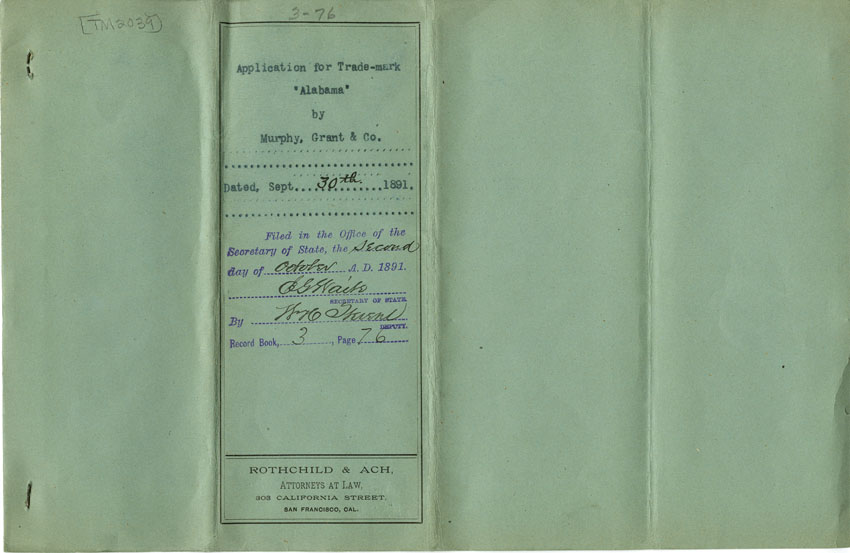 [TM2039]
3-76
Application for Trade-mark
"Alabama"
by
Murphy, Grant & Co.
Dated, Sept....30th.........1891.
Filed in the Office of the
Secretary of State, the Second
day of October A. D. 1891.
E G Waite
SECRETARY OF STATE.
By
DEPUTY.
Record Book, 3, Page 76
ROTHCHILD & ACH,
ATTORNEYS AT LAW,
303 CALIFORNIA STREET,
SAN FRANCISCO, CAL.